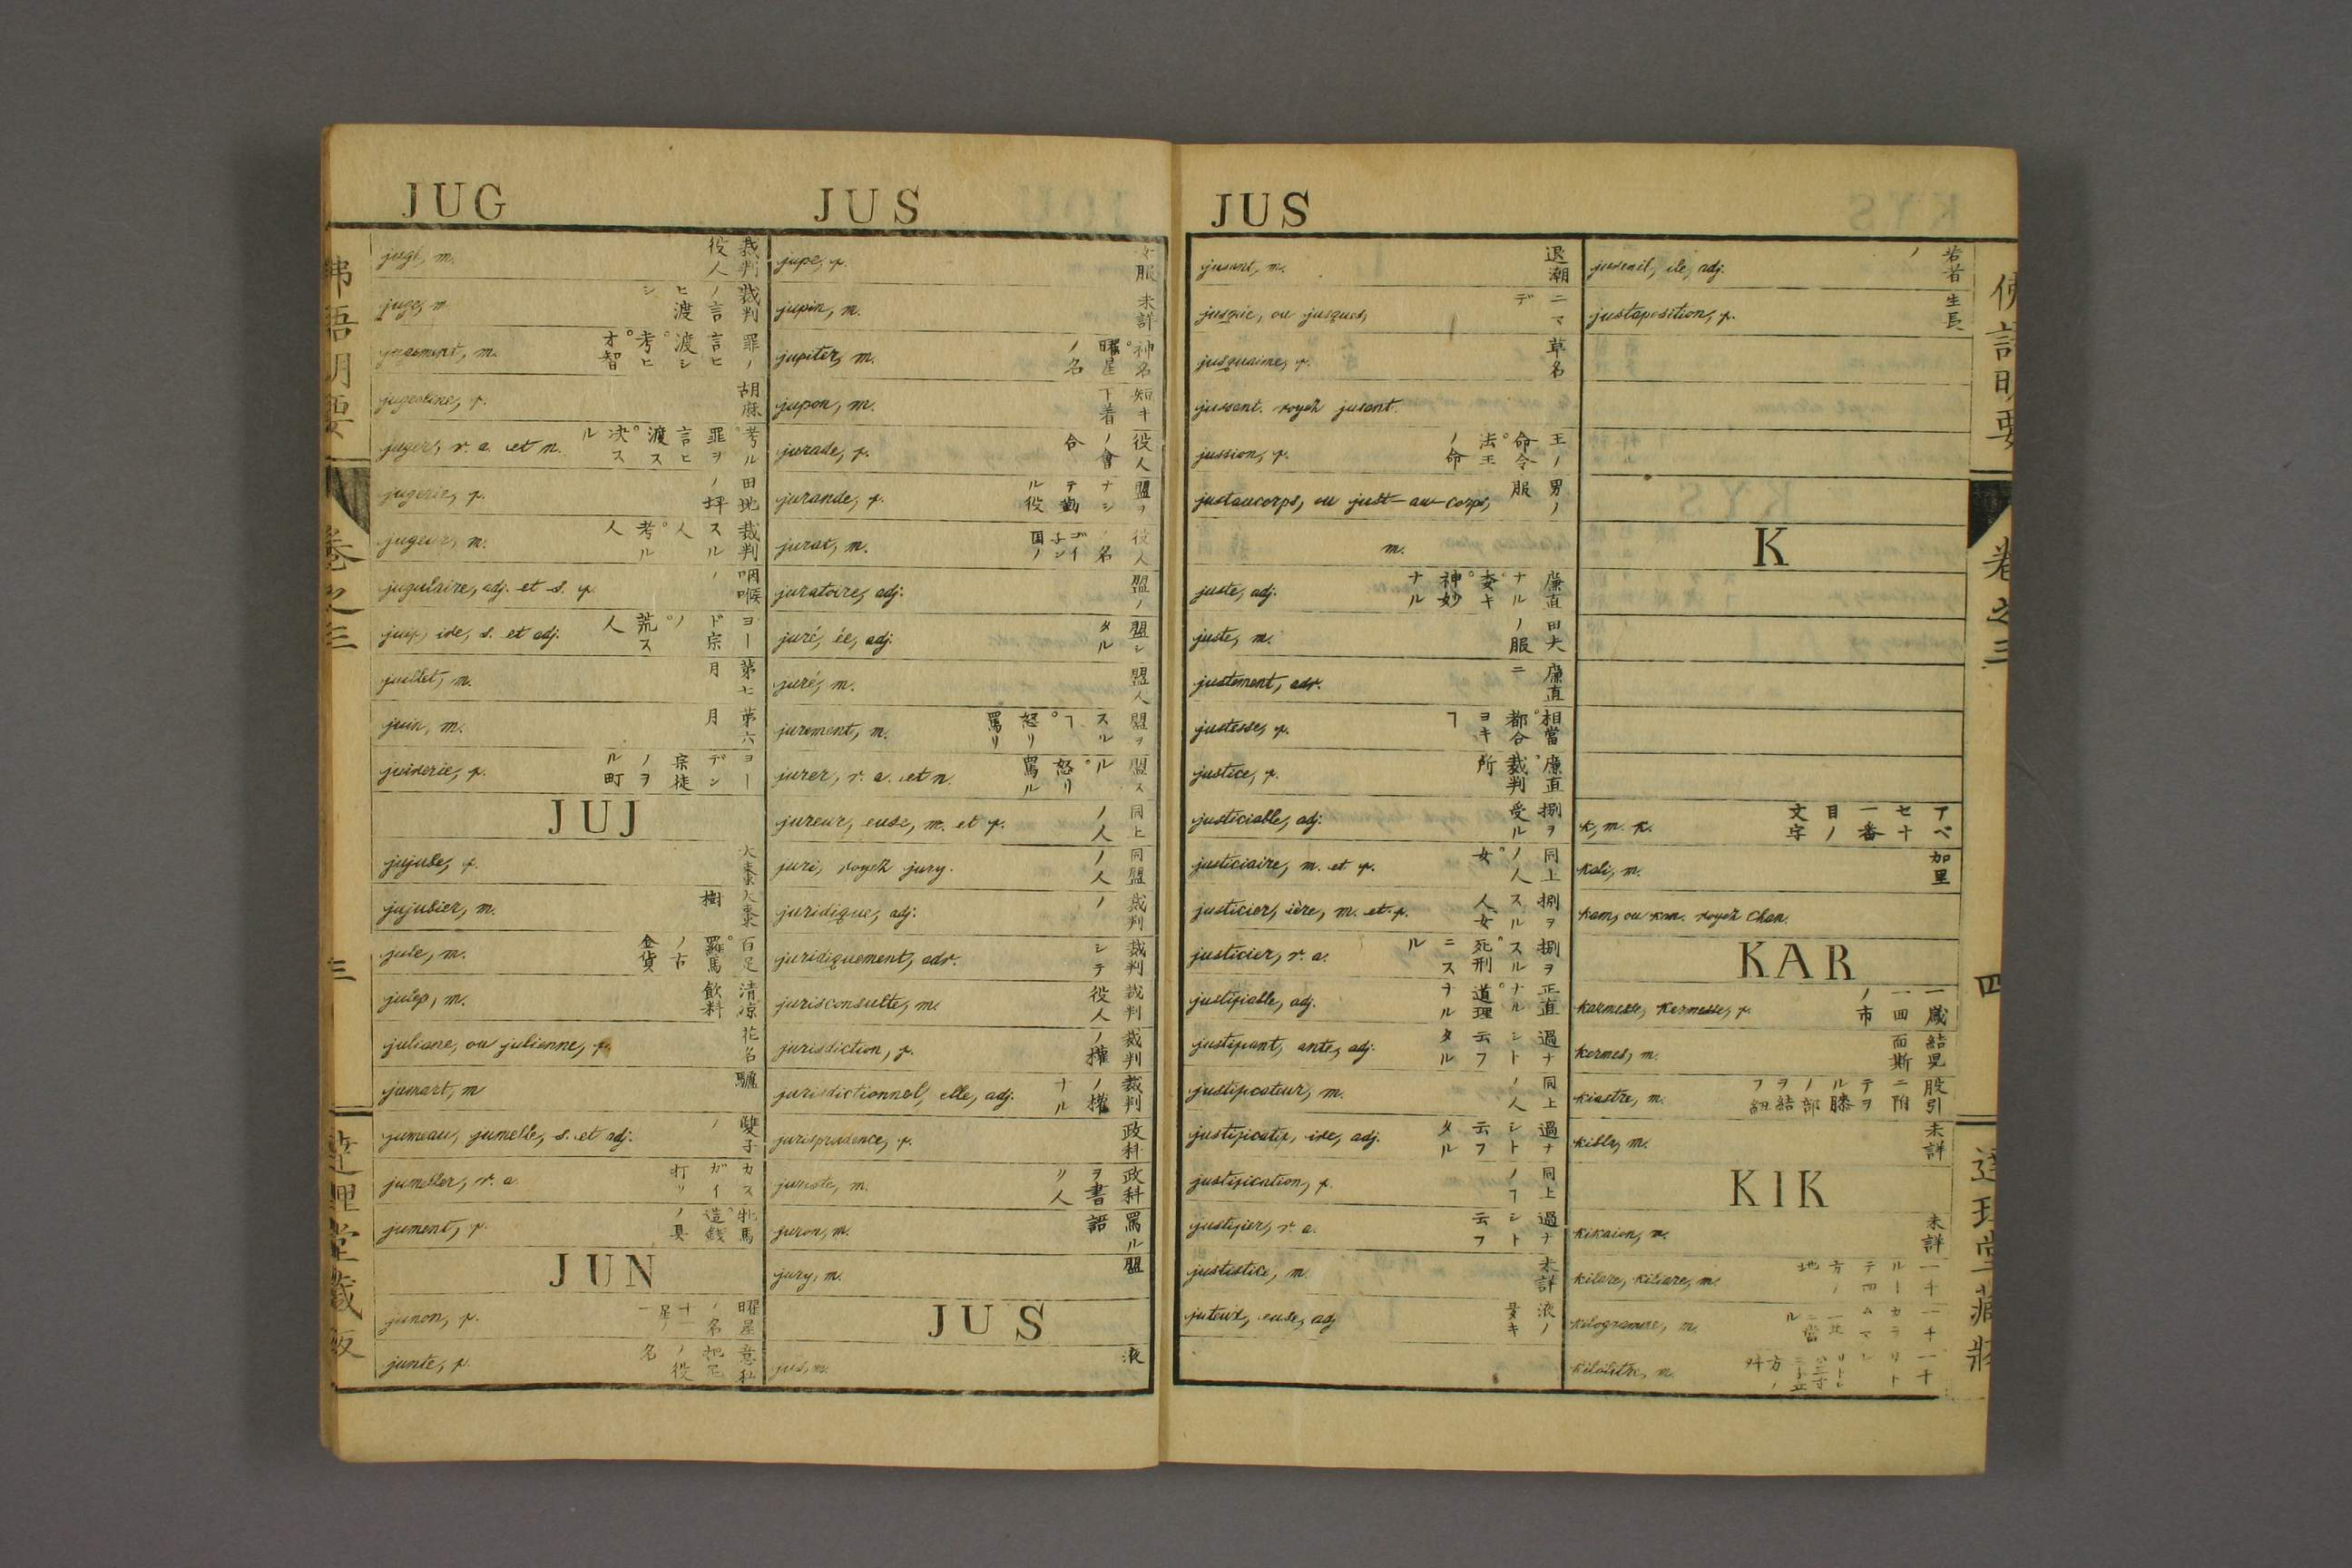 JUG JUS
juge, m. 裁判役人
juge, m. 裁判ノ言ヒ渡シ
jugement, m. 罪ノ言ヒ渡シ。考ヒ。才智
jugeoline, f. 胡麻
juger, v. a. et n. 考ル。罪ヲ言ヒ渡ス。决スル
jugerie, f. 田地ノ坪
jugeur, m. 裁判スル人。考ル人
jugulaire, adj. et s. f. 咽喉ノ
juif, ive, s. et adj. ヨード宗ノ。荒ス人
juillet, m. 第七月
juin, m. 第六月
juiverie, f. ヨーデン宗徒ノヲル町
JUJ
jujube, f. 大棗
jujubier, m. 大棗樹
jule, m. 百足。羅馬ノ古金貨
julep, m. 清凉飲料
juliane, ou julienne, f. 花名
jumart, m 驢
jumeau, jumelle, s. et adj. 雙子ノ
jumeller, v. a
jument, f. 牝馬。造錢ノ具
JUN
junon, f.
junte, f.
jupe, f. 女服
jupin, m. 未詳
jupiter, m. 神名。曜星ノ名
jupon, m. 短キ下着
jurade, f. 役人ノ會合
jurande, f. 盟ヲナシテ勤ル役
jurat, m.
juratoire, adj. 盟ノ
juré, ée, adj. 盟シタル
juré, m. 盟人
jurement, m. 盟ヲスルヿ。怒リ罵リ
jurer, v. a. et n. 盟スル。怒リ罵ル
jureur, euse, m. et f. 同上ノ人
juri, voyez jury. 同盟ノ人
juridique, adj. 裁判ノ
juridiquement, adv. 裁判シテ
jurisconsulte, m. 裁判役人
jurisdiction, f. 裁判ノ權
jurisdictionnel, elle, adj. 裁判ノ權ナル
jurisprudence, f. 政科
juriste, m. 政科ヲ書ク人
juron, m. 罵ル語
jury, m. 盟
JUS
jus, m. 液
JUS
jusant, m. 退潮
jusque, ou jusques, ニマデ
jusquiame, f. 草名
jussant. voyez jusant.
jussion, f. 王ノ命令。法王ノ命
justaucorps, ou just-au-corps, 男ノ服
m.
juste, adj. 廉直ナル。委キ。神妙ナル
juste, m. 田夫ノ服
justement, adv. 廉直ニ
justesse, f. 相當。都合ヨキヿ
justice, f. 廉直。裁判所
justiciable, adj. 捌ヲ受ル
justiciaire, m. et f. 同上ノ人。女
justicier, ière, m. et f. 捌ヲスル人。女
justicier, v. a. 捌ヲスル。死刑ニスル
justifiable, adj. 正直ナル。道理ナル
justifiant, ante, adj. 過ナシト云フタル
justificateur, m. 同上ノ人
justificatif, ive, adj. 過ナシト云フタル
justification, f. 同上ノヿ
justifier, v. a. 過ナシト云フ
justistice, m. 未詳
juteux, euse, adj 液ノ多キ
juvenil, ile, adj. 若者ノ
juxtaposition, f. 生長
K
k, m. k. アベセ十一番目ノ文字
kali, m. 加里
kam, ou kan. voyez Chan.
KAR
karmesse, Kermesse, f. 一歳一回ノ市
kermes, m. 結児面斯
kiastre, m.
kible, m. 未詳
KIK
kikaion, m. 未詳
kilare, kiliare, m.
kilogramme, m.
kilolitre, m.
佛語明要
卷之三
三
四
達理堂藏版